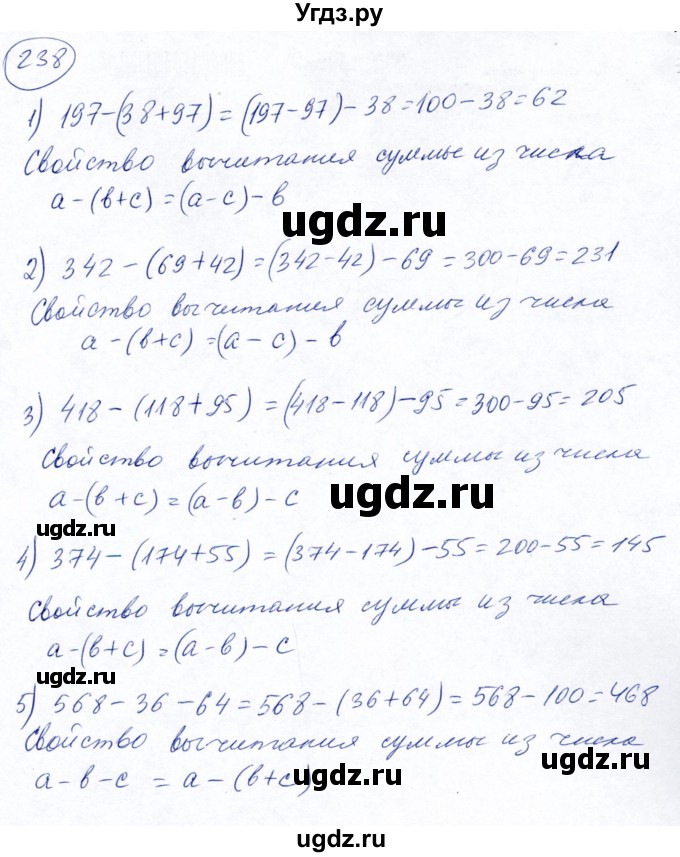 Угдз.ру
238
1) 197-(38+97)=(197-97)-38=100-38=62
Свойство вычитания суммы из числа
a-(в+с)=(a-с)-в
ugdz.ru
2) 342-(69+42)=(342-42)-69=300-69=231
Свойство вычитания суммы из числа
a-(в+с)=(a-с)-в
3) 418-(118+95)=(418-118)-95=300-95=205
Свойство вычитания суммы из числа
a-(в+с)=(a-в)-с
ugdz.ru
ugdz.ru
4) 374-(174+55)=(374-174)-55=200-55=145
Свойство вычитания суммы из числа
a-(в+с)=(a-в)-с
ugdz.ru
5) 568-36-64=568-(36+64)=568-100=468
Свойство вычитания суммы из числа
a-в-с=a-(в+с)
ugdz.ru
ugdz.ru
ugdz.ru